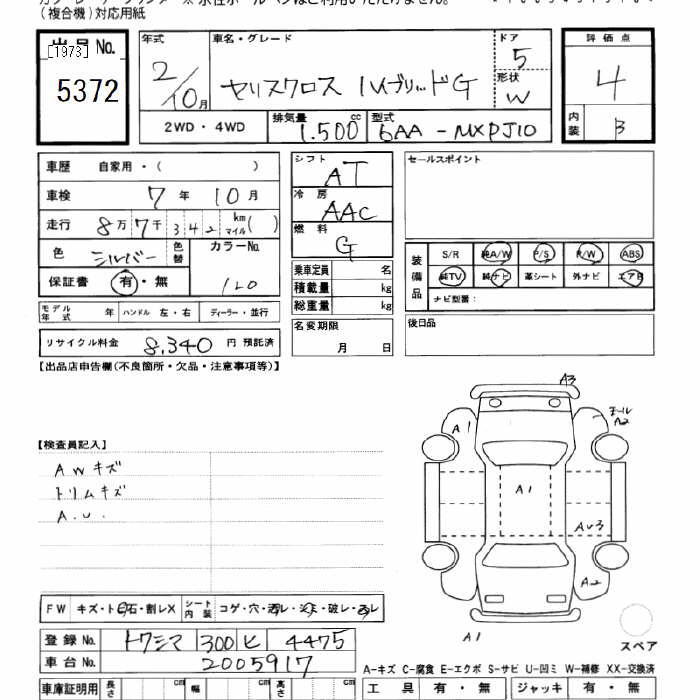 (複合機)対応用紙
出品 No.
[1973]
5372
年式
2/10月
車名・グレード
ヤリスクロス HVブリッドG
ドア
5
形状
W
評価点
4
内装
B
2WD・4WD
排気量
1.500 cc
型式
6AA-MXPJ10
車歴 自家用・( )
車検 7年 10月
走行 8万7千342 km マイル( )
色 シルバー 色替
カラーNo.
1L0
保証書 有・無
モデル年式 年 ハンドル 左・右 ディーラー・並行
リサイクル料金 8,340 円 預託済
シフト
AT
冷房
AAC
燃料
G
乗車定員 名
積載量 kg
総重量 kg
名変期限
月 日
セールスポイント
装備品
S/R 純A/W P/S P/W ABS
純TV 純ナビ 革シート 外ナビ エアB
ナビ型番:
後日品
【出品店申告欄(不良箇所・欠品・注意事項等)】
【検査員記入】
AWキズ
トリムキズ
A.U.
A3
A1
A2
A1
AU3
A2
A1
スペア
FW キズ・ト石・割レX
シート内装 コゲ・穴・レ・シミ・破レ・レ
登録 No. トクシマ 300 ヒ 4475
車台 No. 2005917
A-キズ C-腐食 E-エクボ S-サビ U-凹ミ W-補修 XX-交換済
車庫証明用 長さ cm 幅 cm 高さ cm
工具 有・無 ジャッキ 有・無